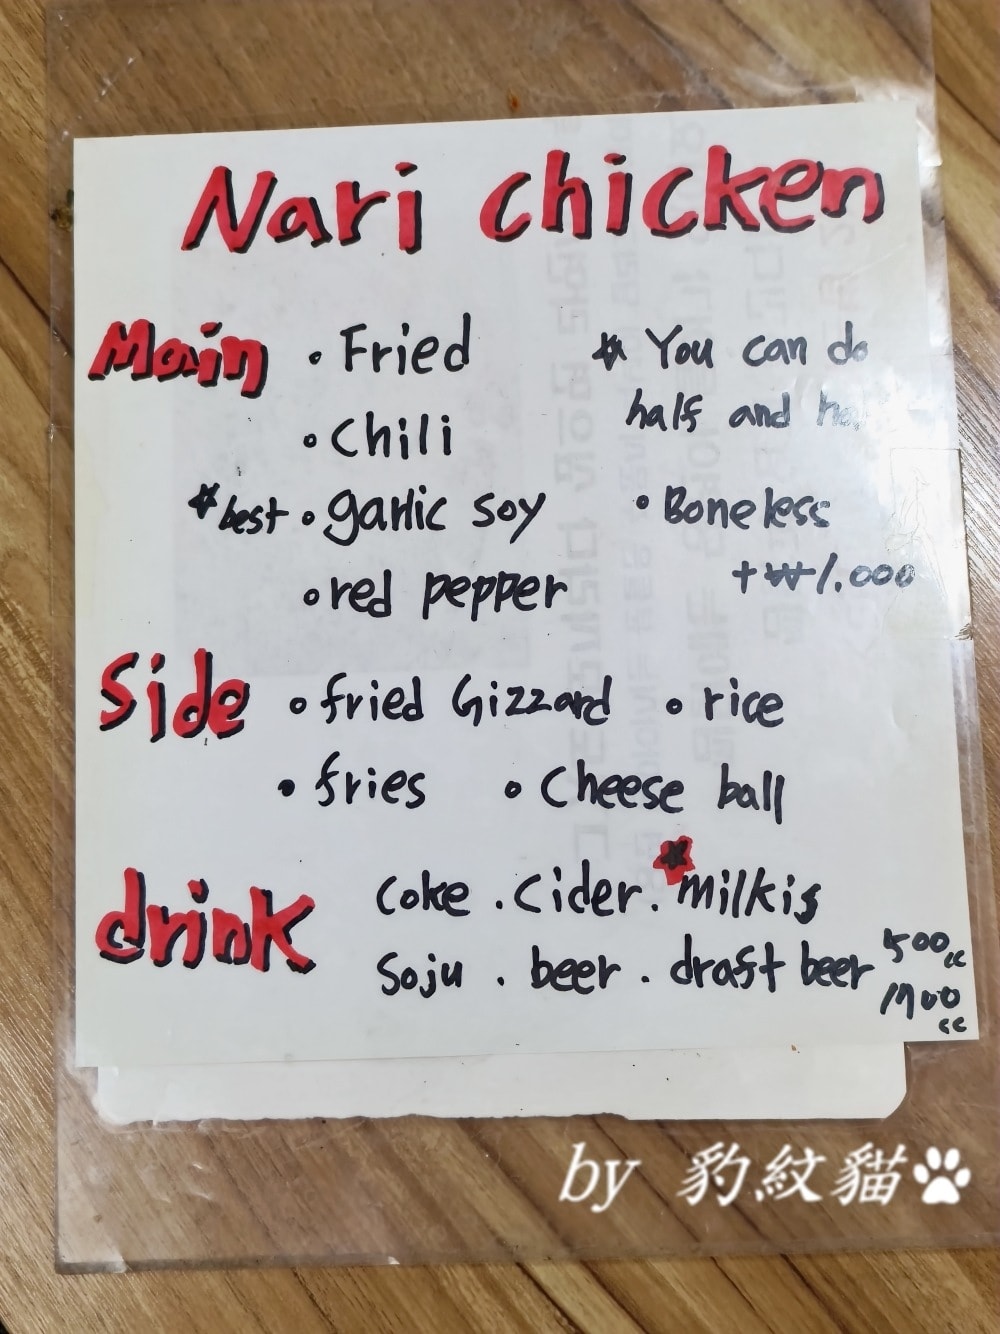 Nari chicken
Main • Fried ☆ You can do
• Chili half and
☆best • garlic soy • Boneless
• red pepper +₩1.000
Side • fried Gizzard • rice
• fries • Cheese ball
drink Coke . Cider . ★milkis
Soju . beer . draft beer 500cc
1700cc
by 豹紋貓